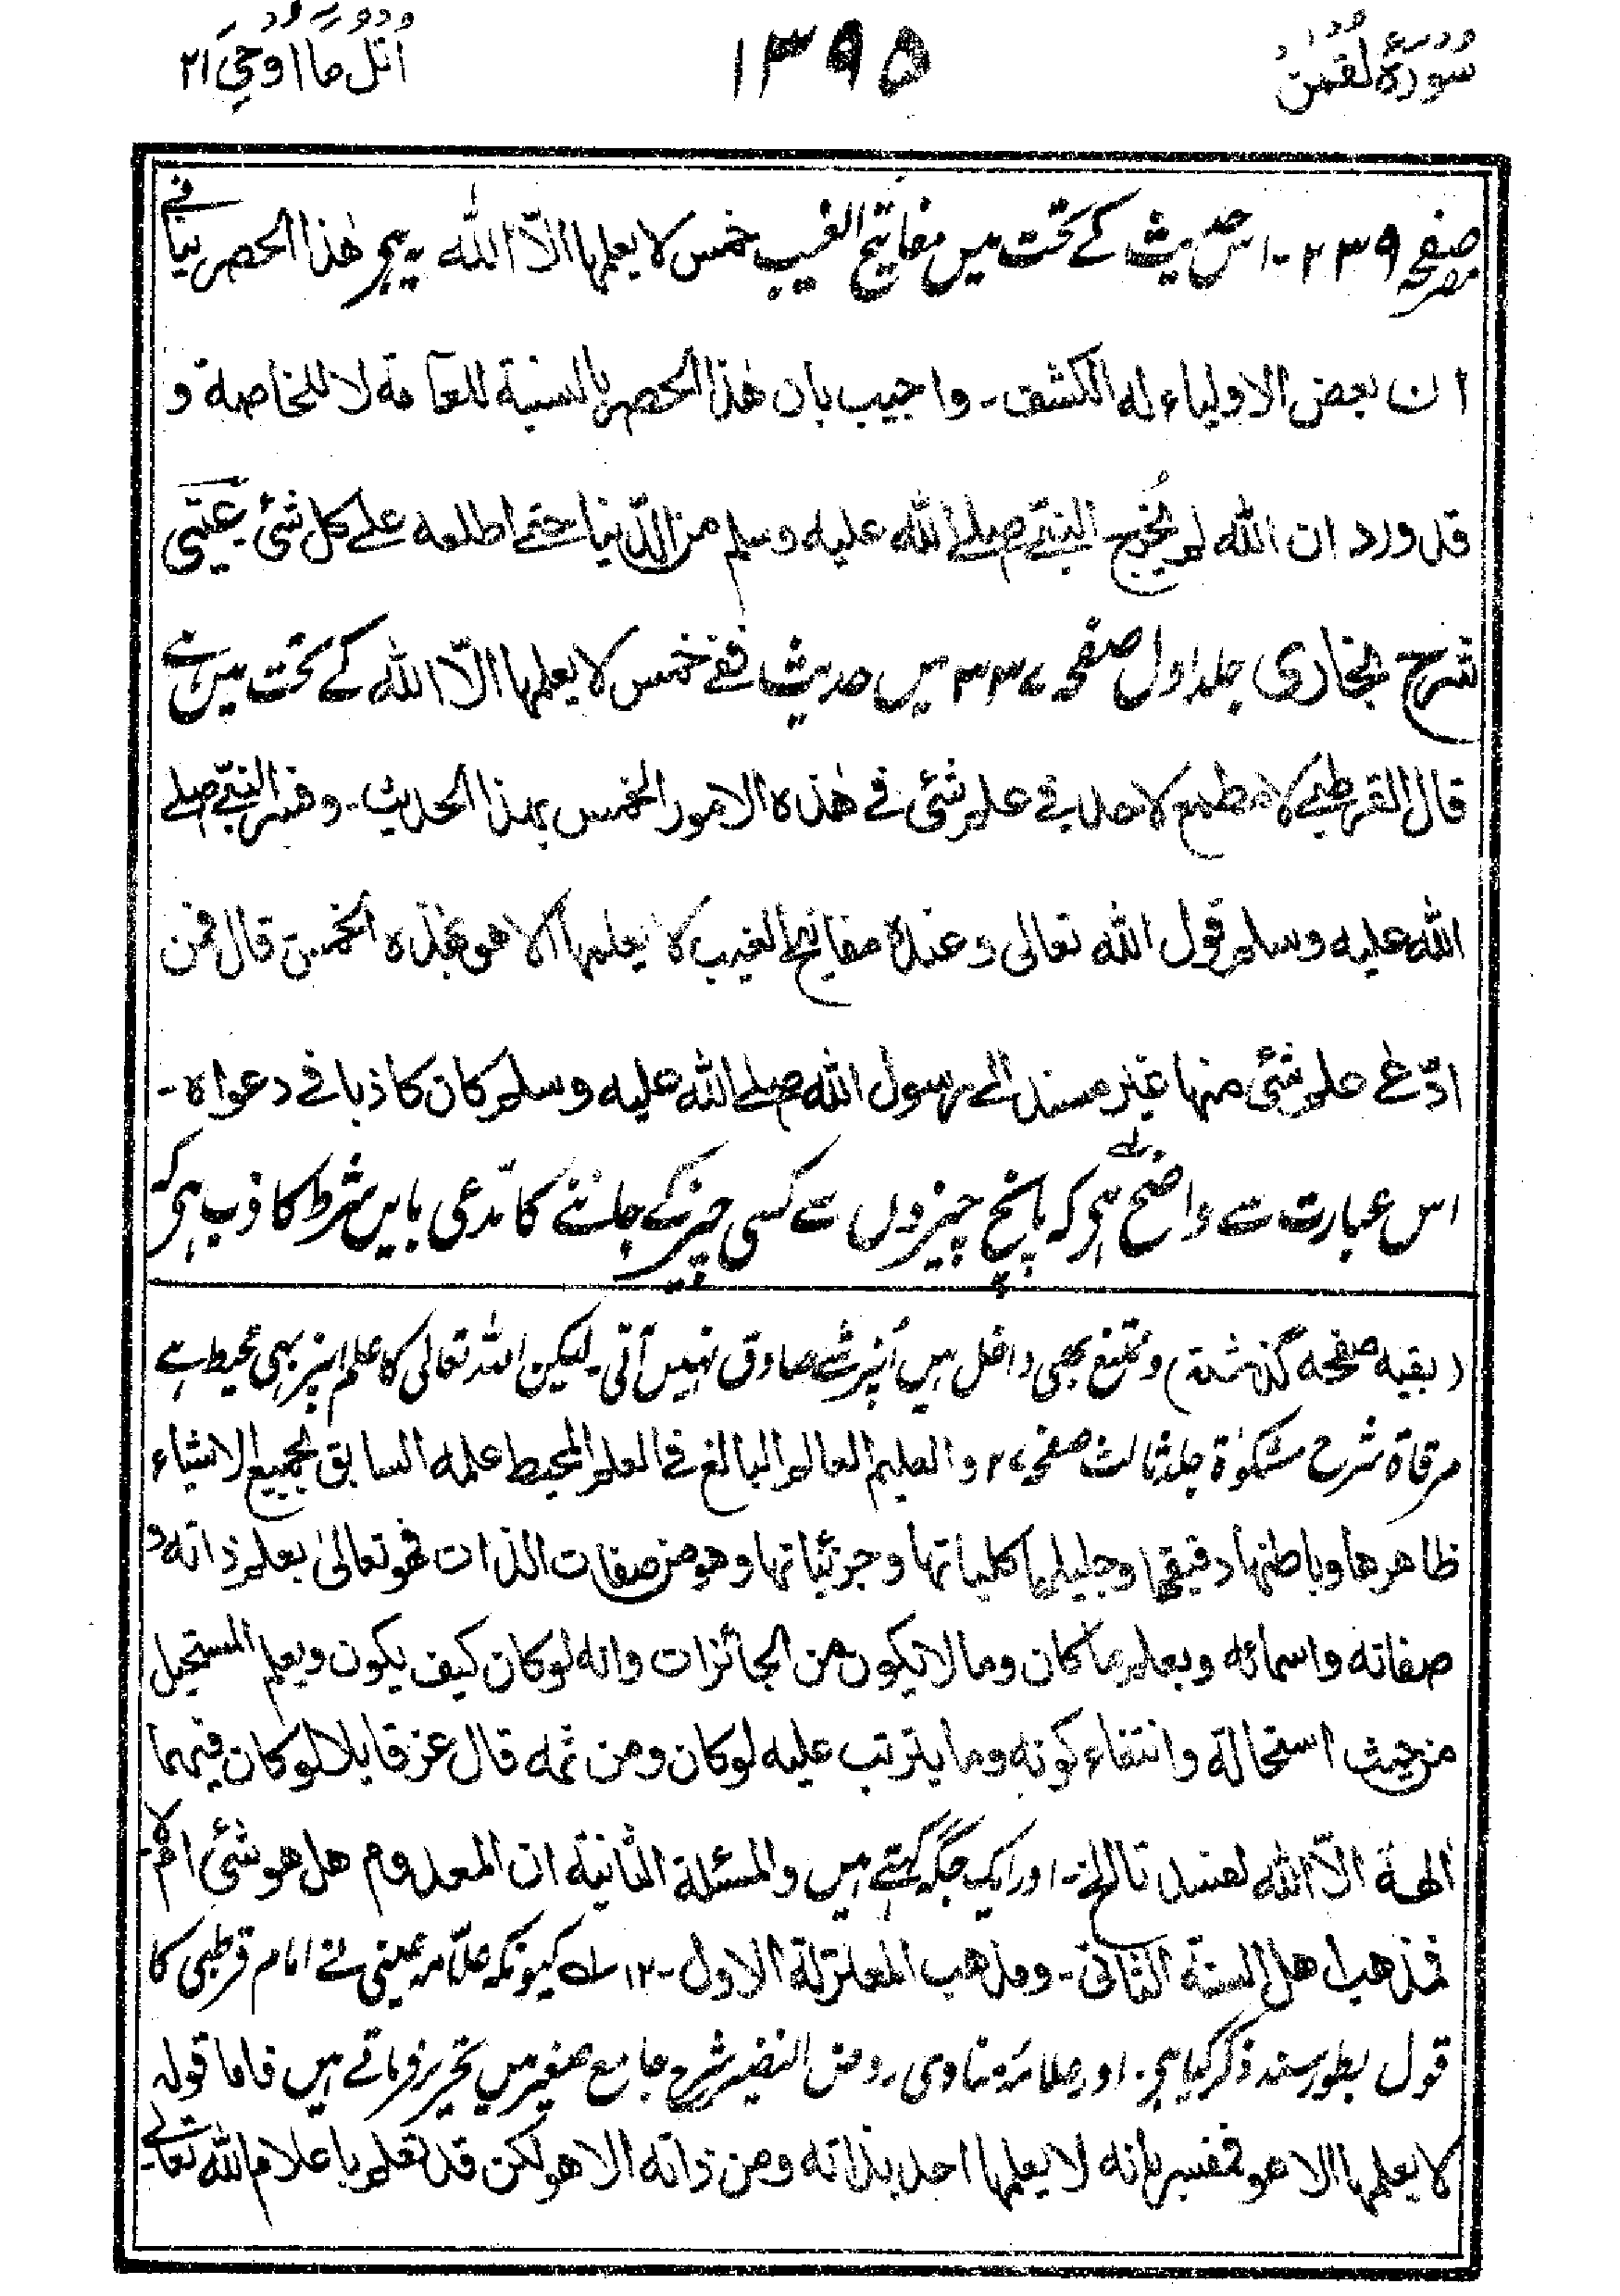 سُوْرَۃُ لُقْمٰن
۱۳۹۵
اُتْلُ مَا اُوْحِیَ ۲۱
صفحہ ۲۳۹ - اس حدیث کے تحت میں مفاتیح الغیب خمس لا یعلمہا الّا اللہ یہ ہی هٰذا الحصر ینافی
ان بعض الاولیاء لہ الکشف - واجیب بان هٰذا الحصر بالنسبة للعامة لا للخاصة و
قد ورد ان اللہ لم یُخرج النبی صلے اللہ علیہ وسلم من الدّنیا حتی اطلعہ علے کل شئ عینی
شرح بخاری جلد اول صفحہ ۳۳۷ میں حدیث فی خمس لا یعلمہا الّا اللہ کے تحت میں ہے
قال القرطبی لا مطمع لاحد فی علم شئ فی هٰذہ الامور الخمس بهذا الحدیث - وفسر النبی صلے
اللہ علیہ وسلم قول اللہ تعالی وعندہ مفاتیح الغیب لا یعلمہا الا هو بهٰذہ الخمس قال فمن
ادّعی علم شئ منها غیر مسند الی رسول اللہ صلے اللہ علیہ وسلم کان کاذبا فی دعواہ -
اس عبارت سے واضح ہی کہ پانچ چیزوں سے کسی چیز کے جاننے کا مدّعی بایں شرط کاذب ہی کہ
(بقیہ صفحہ گذشتہ) وممتنع بھی داخل ہیں اُنپر شے صادق نہیں آتی - لیکن اللہ تعالی کا علم انپر بھی محیط ہے
مرقاة شرح مشکوٰة جلد ثالث صفحہ ۲۷ والعلیم العالم البالغ فی العلم المحیط علمہ السابق بجمیع الاشیاء
ظاهرها وباطنها دقیقها وجلیلها کلیاتها وجزئیاتها وهو من صفات الذات فهو تعالیٰ یعلم ذاتہ و
صفاتہ واسمائہ ویعلم ما کان وما لا یکون من الجائزات وانہ لو کان کیف یکون ویعلم المستحیل
من حیث استحالة وانتفاء کونہ وما یترتب علیہ لو کان ومن ثمہ قال عز قایلا لو کان فیہما
اٰلهة الّا اللہ لفسدتا الخ - اور ایک جگہ کہتے ہیں والمسئلة الثانیة ان المعدوم هل هو شئ ام لا
فمذهب اهل السنة الثانی - ومذهب المعتزلة الاول - ۱۲ کیونکہ علّامہ عینی نے امام قرطبی کا
قول بطور سند ذکر کیا ہی - اور علامہ مناوی روض النضیر شرح جامع صغیر میں تحریر فرماتے ہیں فاما قولہ
لا یعلمہا الا هو فمفسر بانہ لا یعلمہا احد بذاتہ ومن ذاتہ الا هو لکن قد تعلم باعلام اللہ تعالے